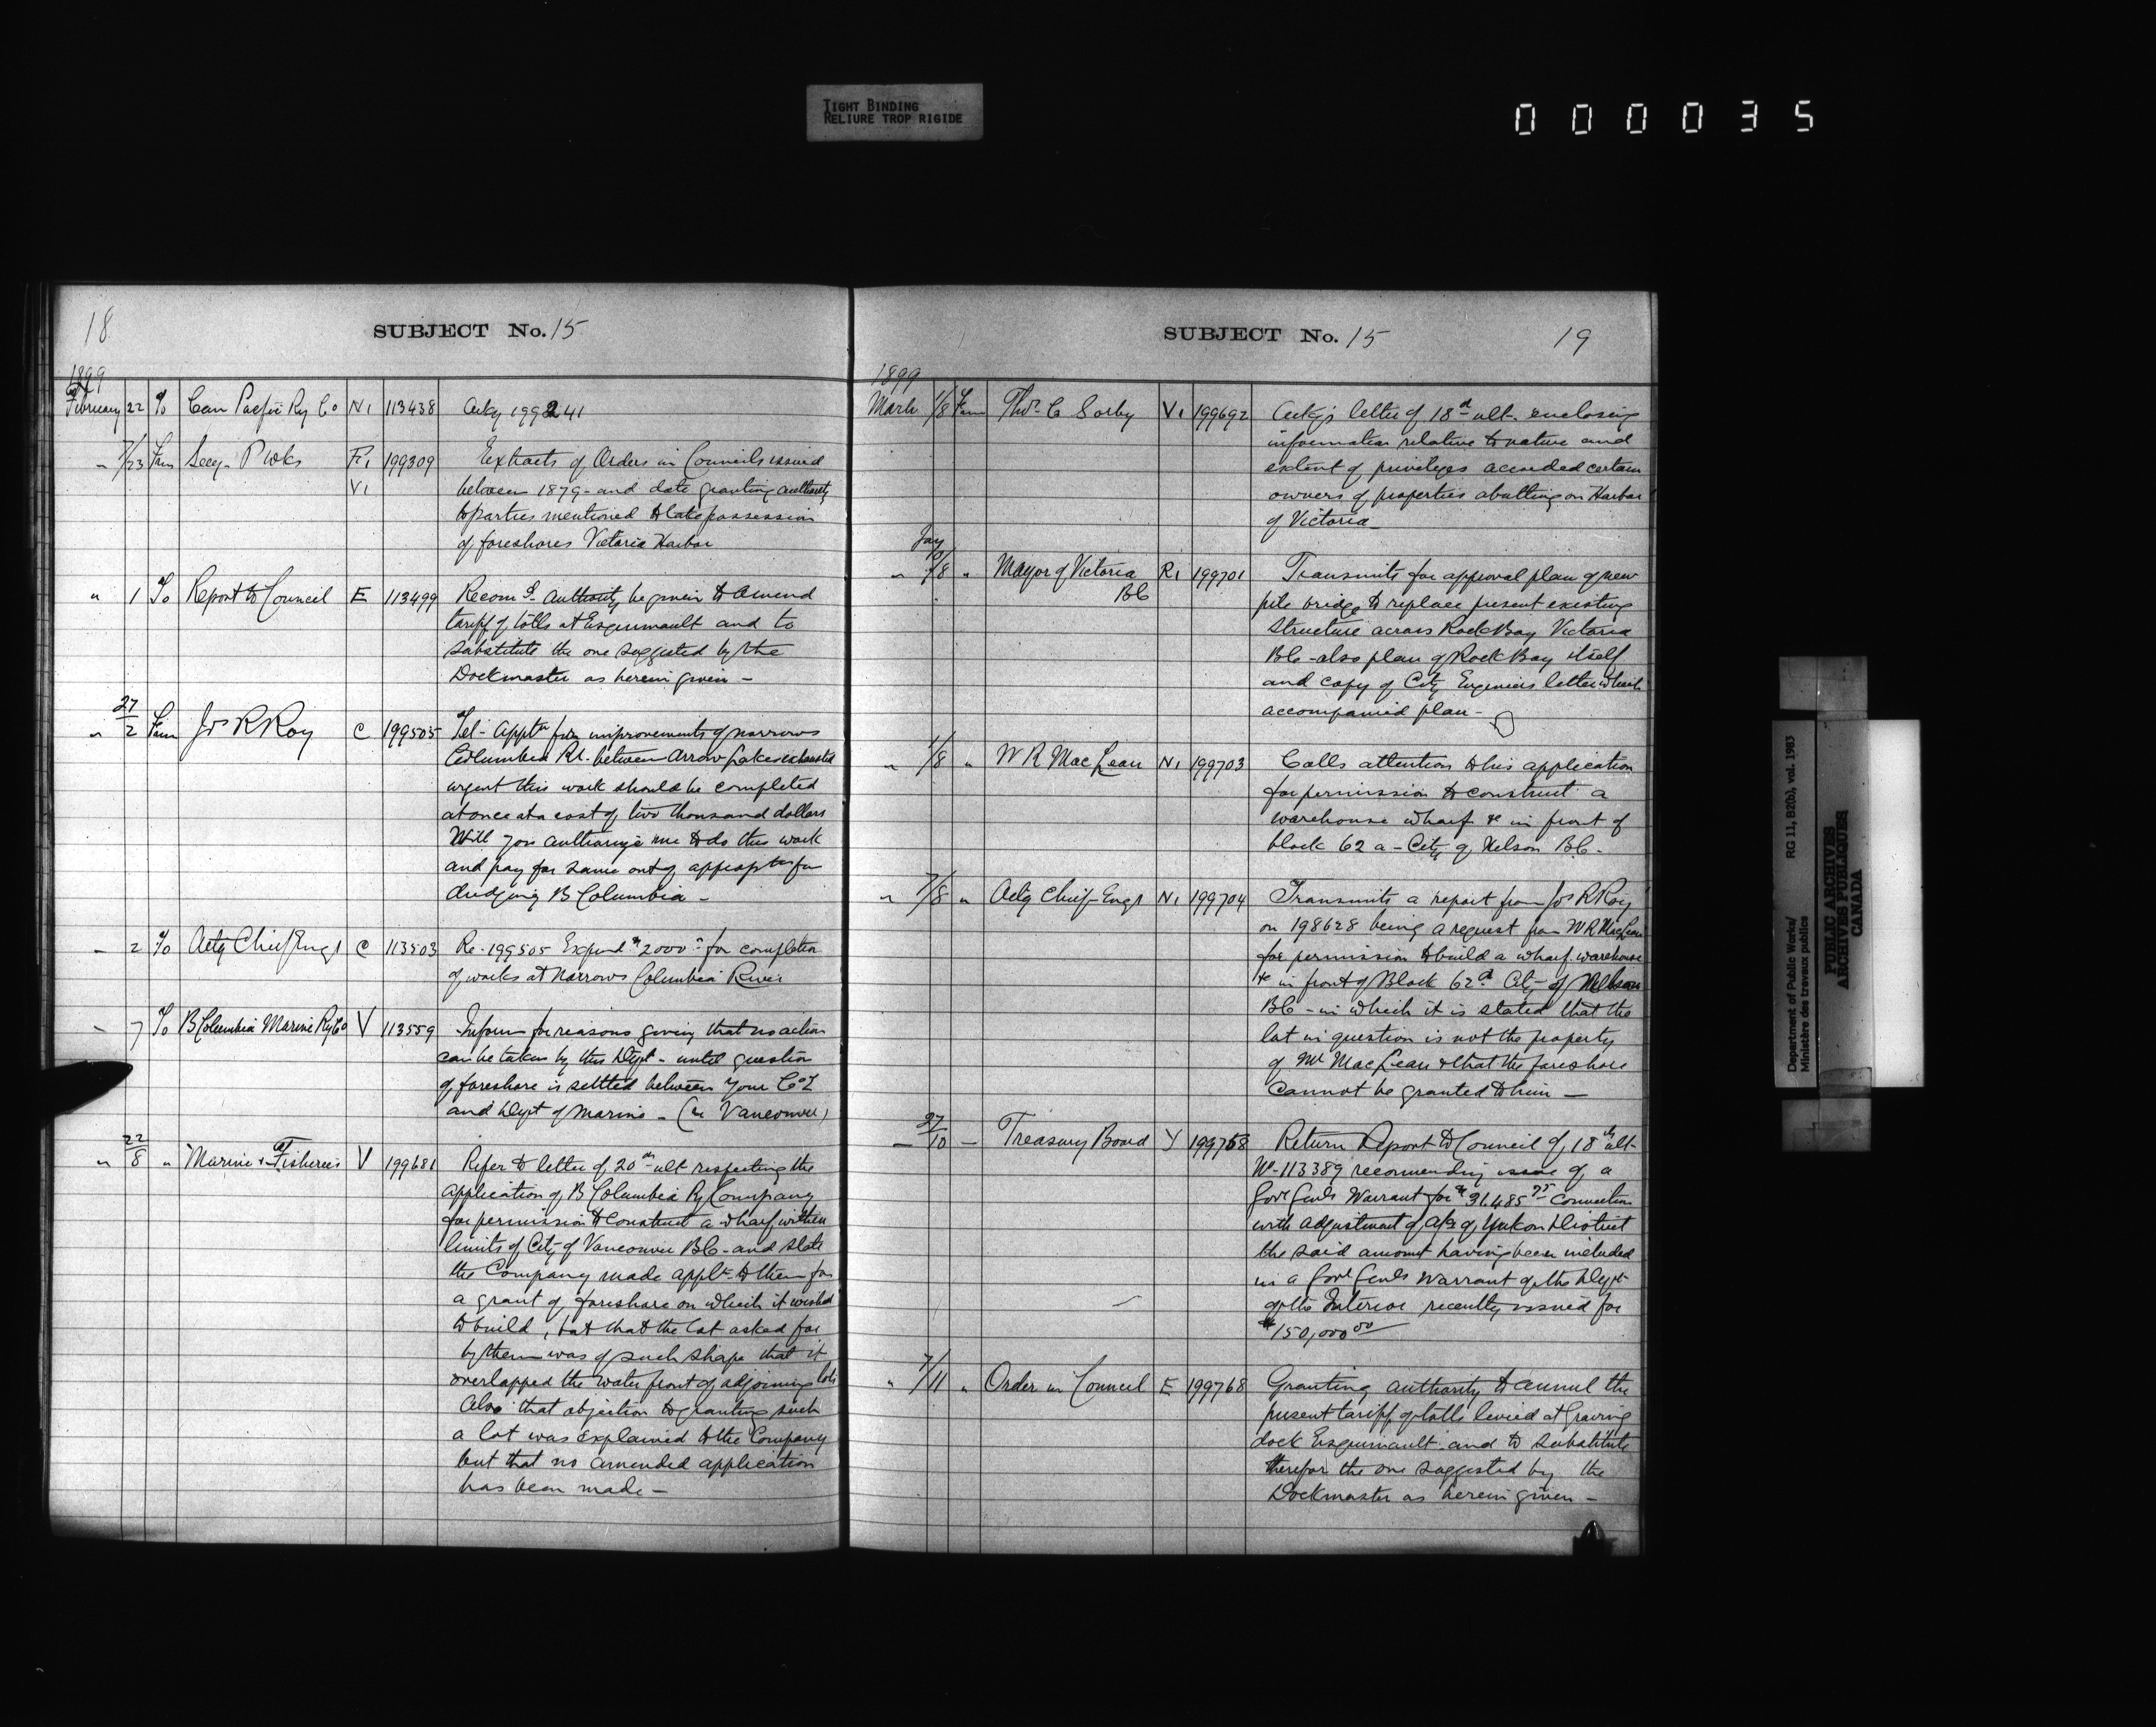 TIGHT BINDING
RELIURE TROP RIGIDE
000035
18
SUBJECT No. 15
1899
February 22 To Can Pacific Ry Co N1 113438 Ackg 199241
" 23 From Secy. P Wks R1 199309 Extracts of Orders in Councils issued
V1 between 1879 and date granting authority
to parties mentioned to take possession
of foreshores Victoria Harbor
" 1 To Report to Council E 113499 Recomd authority be given to amend
tariff of tolls at Esquimault and to
substitute the one suggested by the
Dockmaster as herein given -
27
" 2 From Jos R Roy C 199505 Tel- Apptn for improvements of narrows
Columbia Rr. between Arrow Lakes exhausted
urgent this work should be completed
at once at a cost of two thousand dollars
Will you authorize me to do this work
and pay for same out of approptn for
dredging B Columbia -
" 2 To Actg Chief Engr C 113503 Re- 199505 Expend $2000 for completion
of works at Narrows Columbia River
" 7 To B Columbia Marine Ry Co V 113559 Inform for reasons giving that no action
can be taken by this Dept - until question
of foreshore is settled between your Co
and Dept of Marine - (re Vancouver)
22
" 8 " Marine & Fisheries V 199681 Refer to letter of 20th ult respecting the
application of B Columbia Ry Company
for permission to construct a wharf within
limits of City of Vancouver BC - and state
the Company made applt to them for
a grant of foreshore on which it wished
to build, but that the lot asked for
by them was of such shape that it
overlapped the water front of adjoining lots
Also that objection to granting such
a lot was explained to the Company
but that no amended application
has been made -
SUBJECT No. 15
19
1899
March 1/8 From Thos C Sorby V1 199692 Ackgs letter of 18th ult. enclosing
information relative to nature and
extent of privileges accorded certain
owners of properties abutting on Harbor
of Victoria -
Jay
10
" 8 " Mayor of Victoria R1 199701 Transmits for approval plan of new
BC pile bridge to replace present existing
structure across Rock Bay Victoria
BC - also plan of Rock Bay itself
and copy of City Engineers letter which
accompanied plan -
" 1/8 " W R MacLean N1 199703 Calls attention to his application
for permission to construct a
warehouse wharf &c in front of
block 62 a - City of Nelson BC -
" 7/8 " Actg Chief Engr N1 199704 Transmits a report from Jos R Roy
on 198628 being a request from W R MacLean
for permission to build a wharf. warehouse
&c in front of Block 62a City of Nelson
BC - in which it is stated that the
lot in question is not the property
of Mr MacLean & that the foreshore
cannot be granted to him -
27
" 10 " Treasury Board Y 199758 Return Report to Council of 18th ult-
No- 113389 recommending issue of a
Govr Genls Warrant for $31.485 75 connection
with adjustment of a/cs of Yukon District
the said amount having been included
in a Govr Genls Warrant of the Dept
of the Interior recently issued for
$150,000 00
" 7/11 " Order in Council E 199768 Granting authority to annul the
present tariff of tolls levied at Graving
dock Esquimault - and to substitute
therefor the one suggested by the
Dockmaster as herein given -
Department of Public Works/
Ministère des travaux publics
RG 11, B2(b), vol. 1983
PUBLIC ARCHIVES
ARCHIVES PUBLIQUES
CANADA